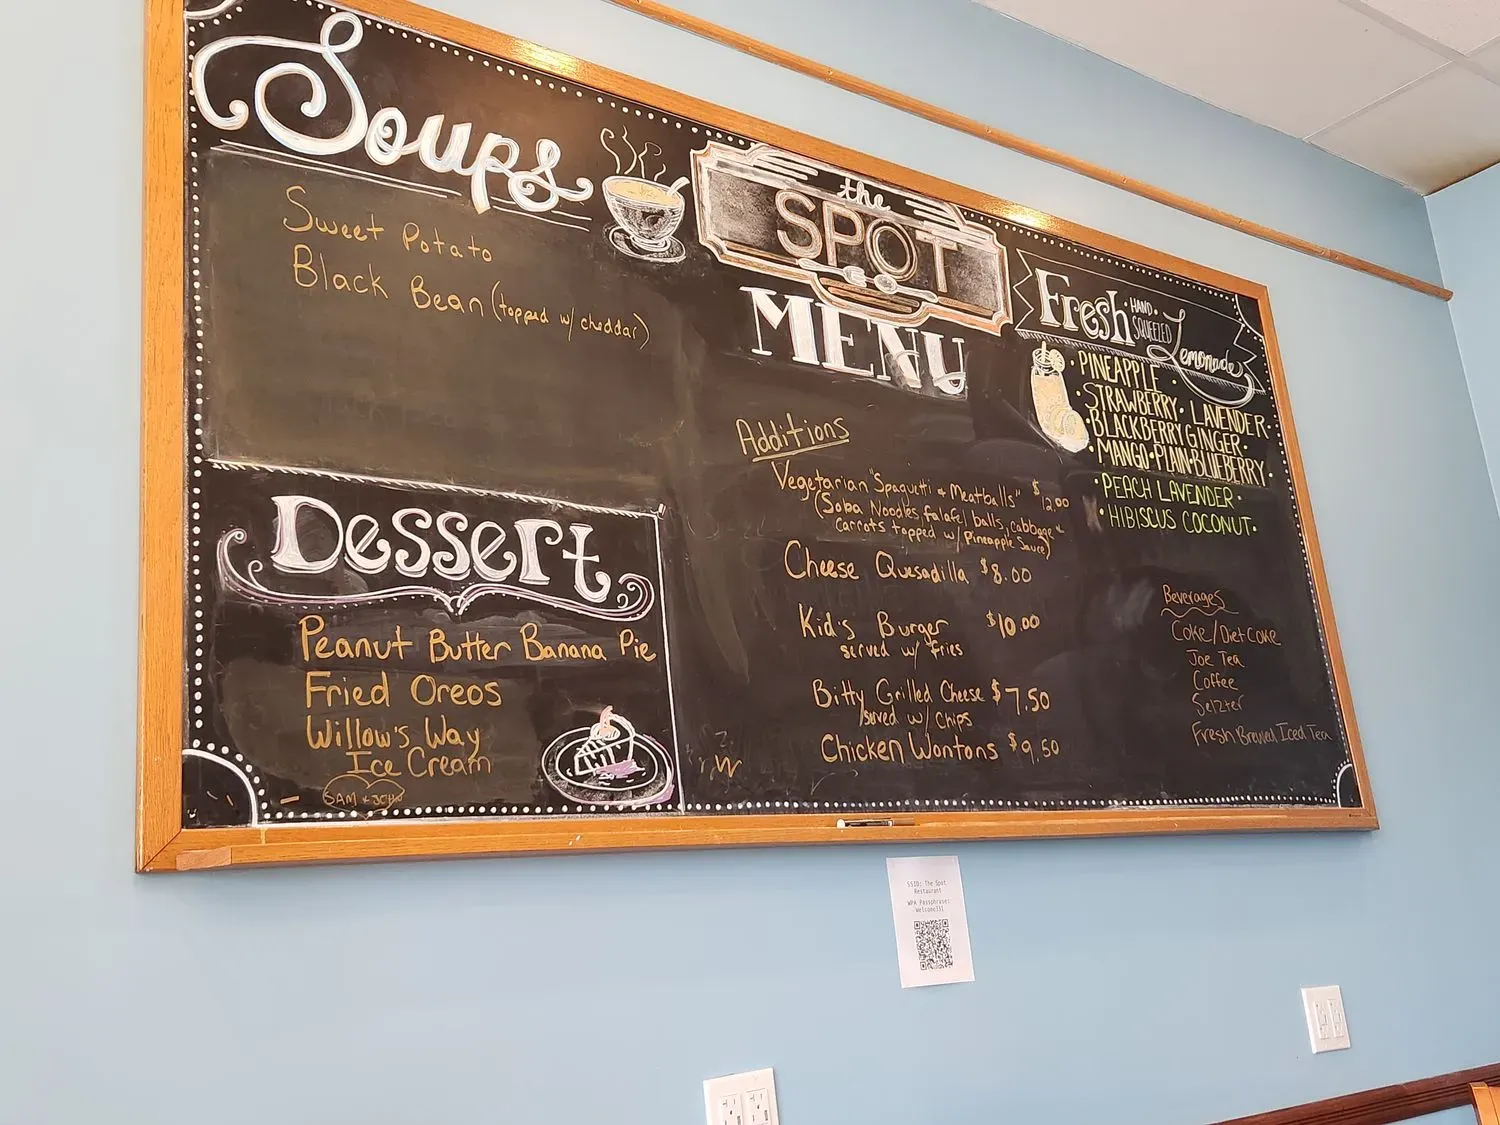 Soups
Sweet Potato
Black Bean (topped w/ cheddar)
Dessert
Peanut Butter Banana Pie
Fried Oreos
Willow's Way
Ice Cream
SAM + JOHN
the
SPOT
MENU
Additions
Vegetarian "Spagueti + Meatballs" $12.00
(Soba Noodles, falafel balls, cabbage +
carrots topped w/ Pineapple Sauce)
Cheese Quesadilla $8.00
Kid's Burger $10.00
served w/ fries
Bitty Grilled Cheese $7.50
served w/ chips
Chicken Wontons $9.50
Fresh HAND SQUEEZED Lemonade
• PINEAPPLE •
STRAWBERRY • LAVENDER •
BLACKBERRY GINGER •
• MANGO • PLAIN • BLUEBERRY •
• PEACH LAVENDER •
• HIBISCUS COCONUT •
Beverages
Coke/Diet Coke
Joe Tea
Coffee
Selzter
Fresh Brewed Iced Tea
SSID: The Spot
Restaurant
WPA Passphrase: